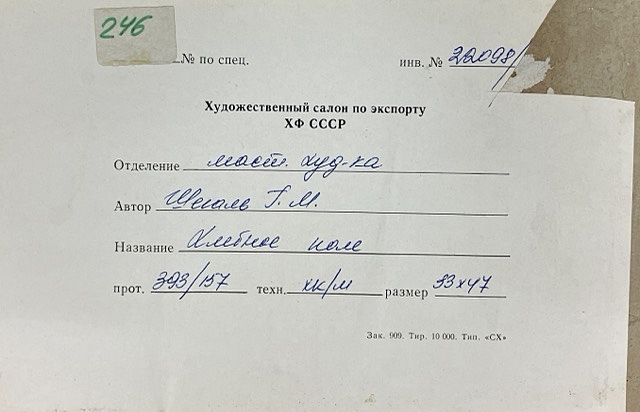 246
№ по спец. инв. № 22098/
Художественный салон по экспорту
ХФ СССР
Отделение маст. худ-ка
Автор Шегаль Г. М.
Название Хлебное поле
прот. 393/157 техн. хк/м размер 33х47
Зак. 909. Тир. 10 000. Тип. «СХ»